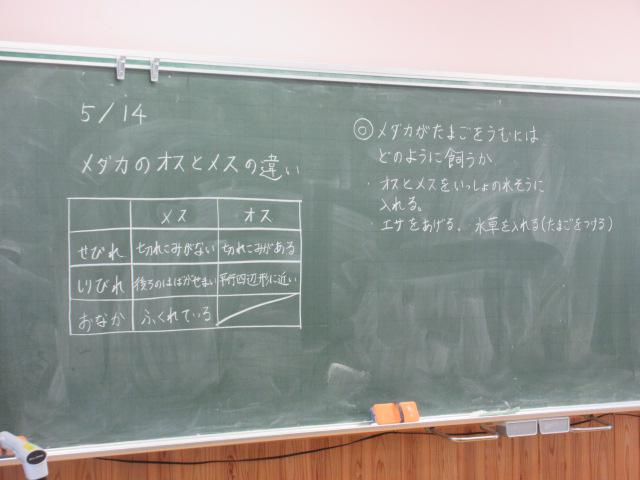 5/14
メダカのオスとメスの違い
メス オス
せびれ 切れこみがない 切れこみがある
しりびれ 後ろのはばがせまい 平行四辺形に近い
おなか ふくれている
◎メダカがたまごをうむには
どのように飼うか
・オスとメスをいっしょの水そうに
入れる。
・エサをあげる。水草を入れる(たまごをつける)